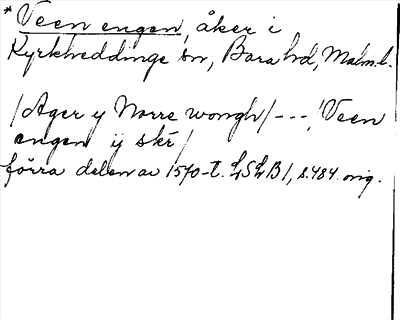 * Veen engen, åker i
Kyrkheddinge sn, Bara hd, Malm.l.
/Ager y Norre wongh/ ---, Veen
engen ij skr/
förra delen av 1570-t. LSLB1, s. 484. orig.